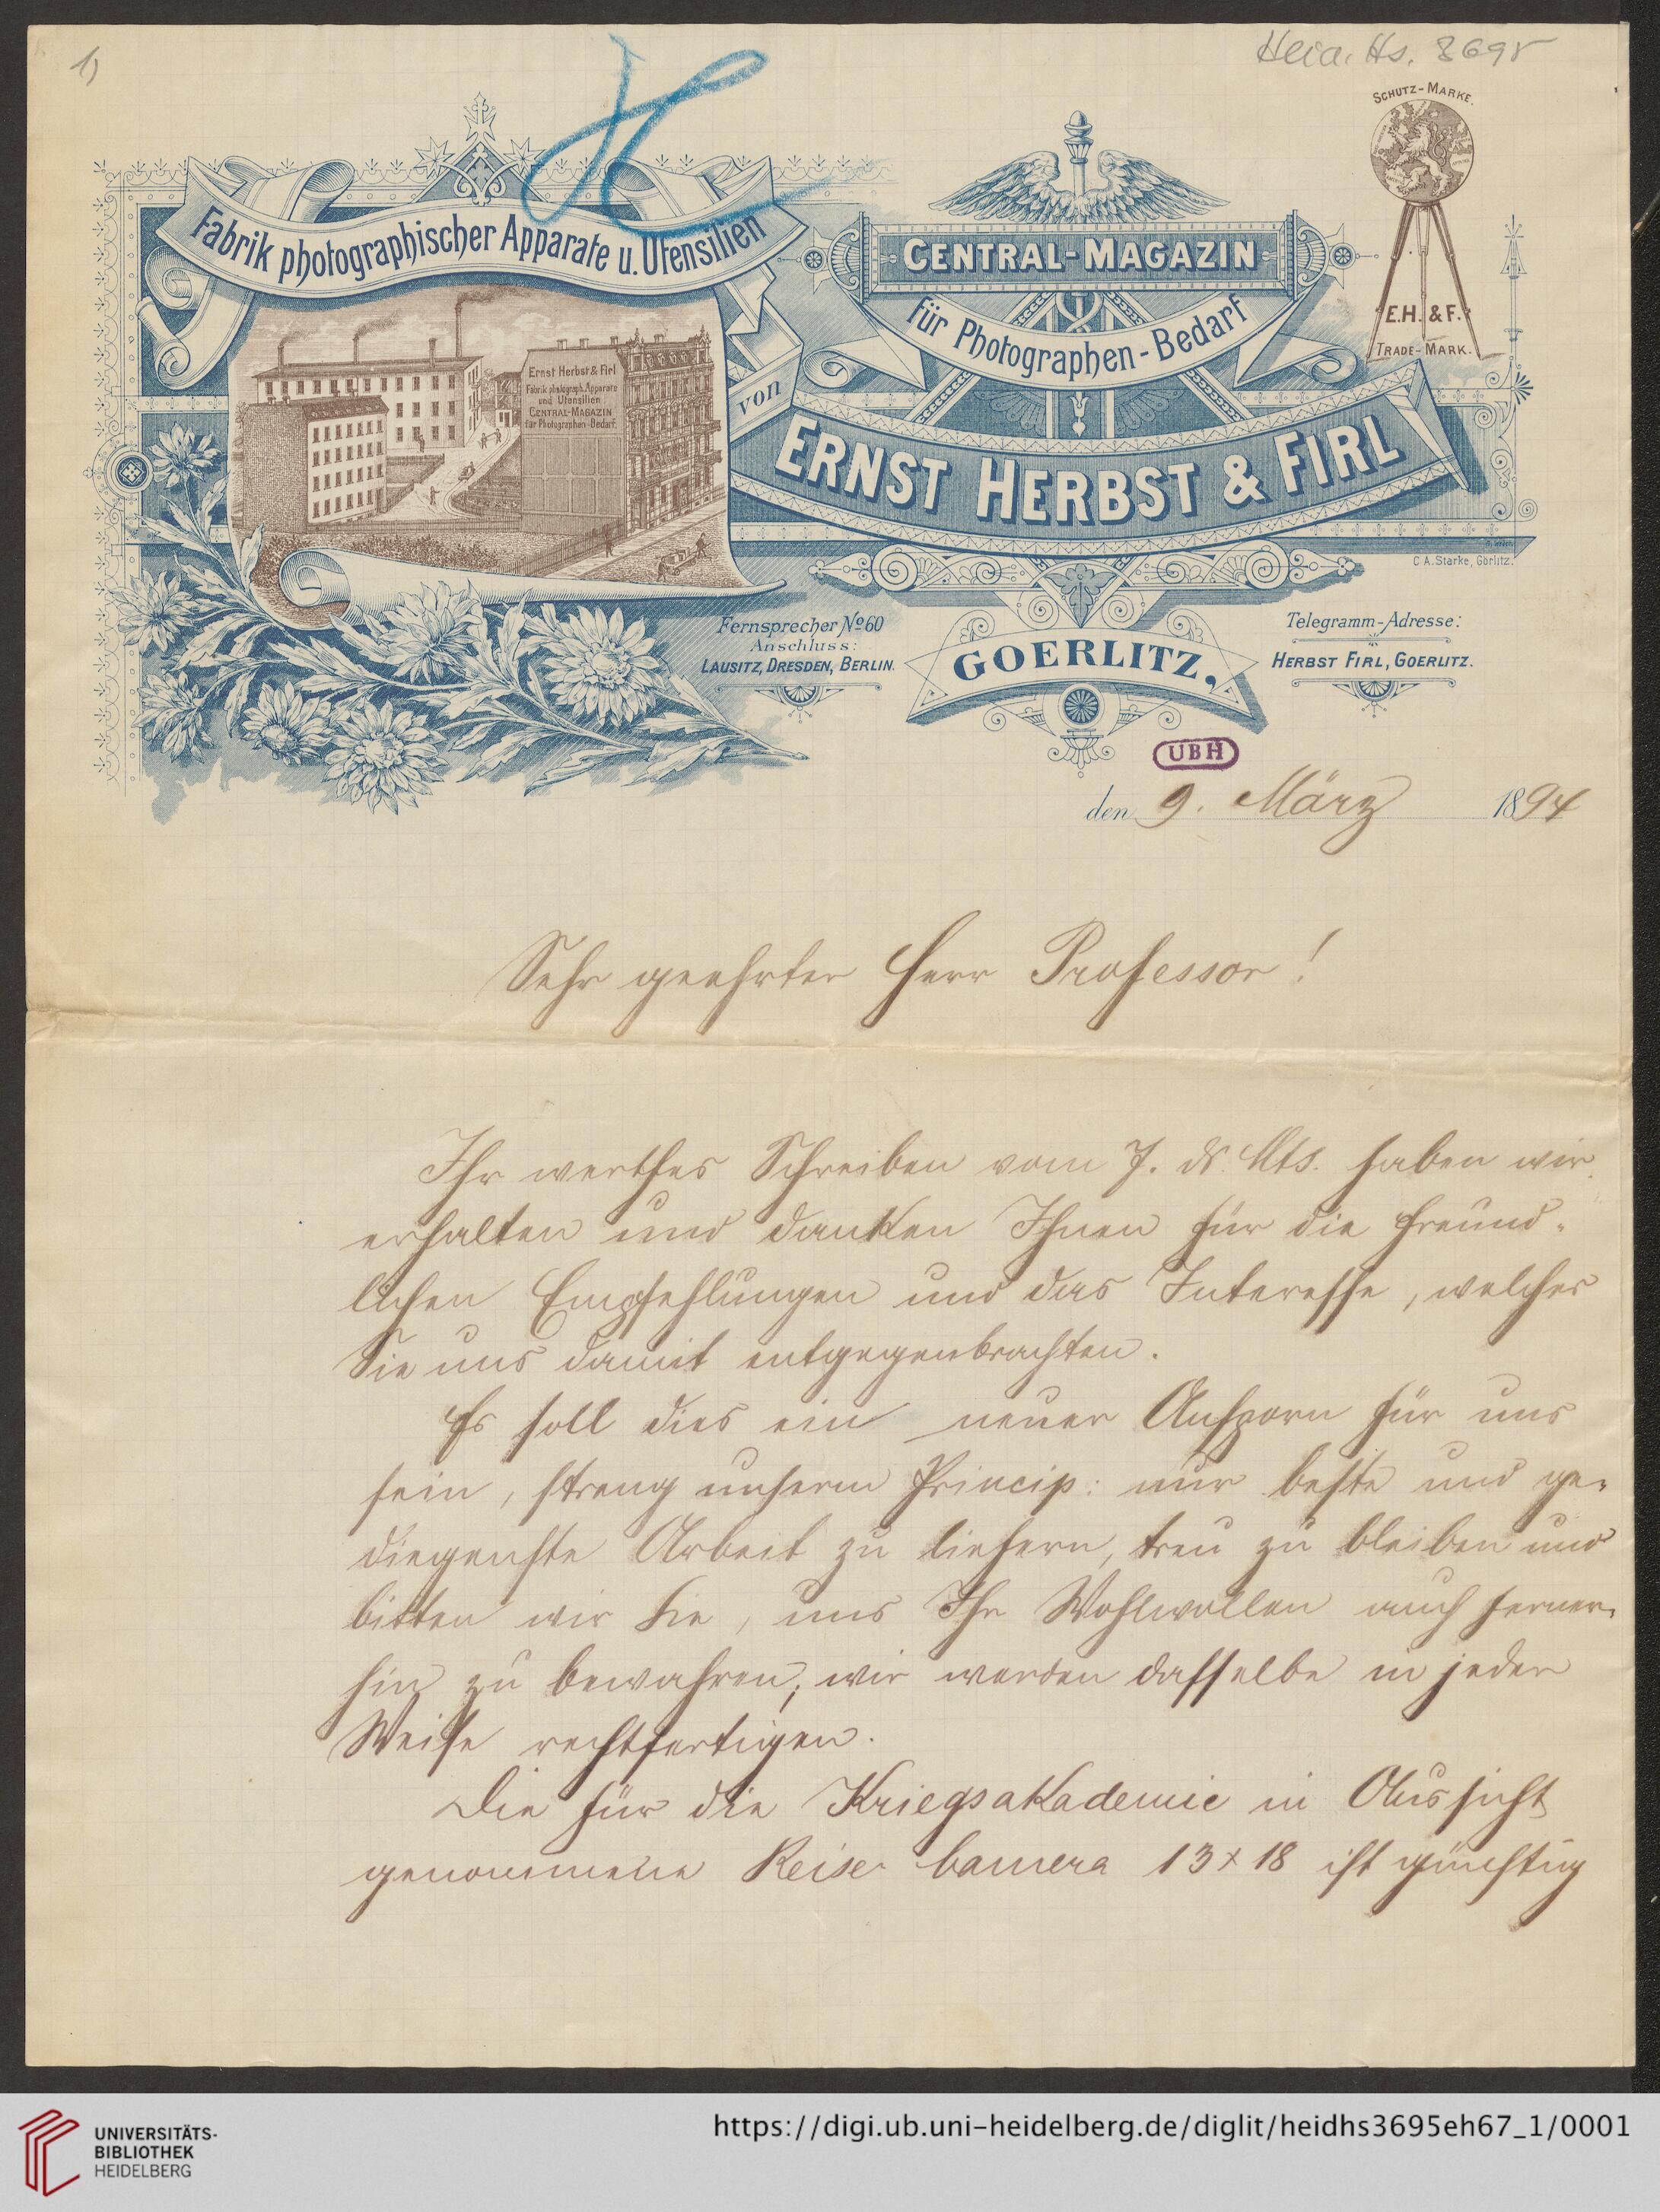 1)
Heid. Hs. 3695
SCHUTZ-MARKE.
Fabrik photographischer Apparate u. Utensilien
CENTRAL-MAGAZIN
für Photographen-Bedarf
E.H. & F.
TRADE-MARK.
Ernst Herbst & Firl
Fabrik photograph. Apparate
und Utensilien
CENTRAL-MAGAZIN
für Photographen-Bedarf.
von
ERNST HERBST & FIRL
C. A. Starke, Görlitz.
Fernsprecher No 60
Anschluss:
LAUSITZ, DRESDEN, BERLIN.
GOERLITZ,
Telegramm-Adresse:
HERBST FIRL, GOERLITZ.
UBH
den 9. März 1894
Sehr geehrter Herr Professor!
Ihr werthes Schreiben vom 7. ds. Mts. haben wir
erhalten und danken Ihnen für die freund-
lichen Empfehlungen und das Interesse, welches
Sie uns damit entgegenbrachten.
Es soll dies ein neuer Ansporn für uns
sein, streng unserm Princip: nur beste und ge-
diegenste Arbeit zu liefern, treu zu bleiben und
bitten wir Sie, uns Ihr Wohlwollen auch ferner-
hin zu bewahren; wir werden dasselbe in jeder
Weise rechtfertigen.
Die für die Kriegsakademie in Aussicht
genommene Reise-Camera 13x18 ist günstig
UNIVERSITÄTS-
BIBLIOTHEK
HEIDELBERG
https://digi.ub.uni-heidelberg.de/diglit/heidhs3695eh67_1/0001